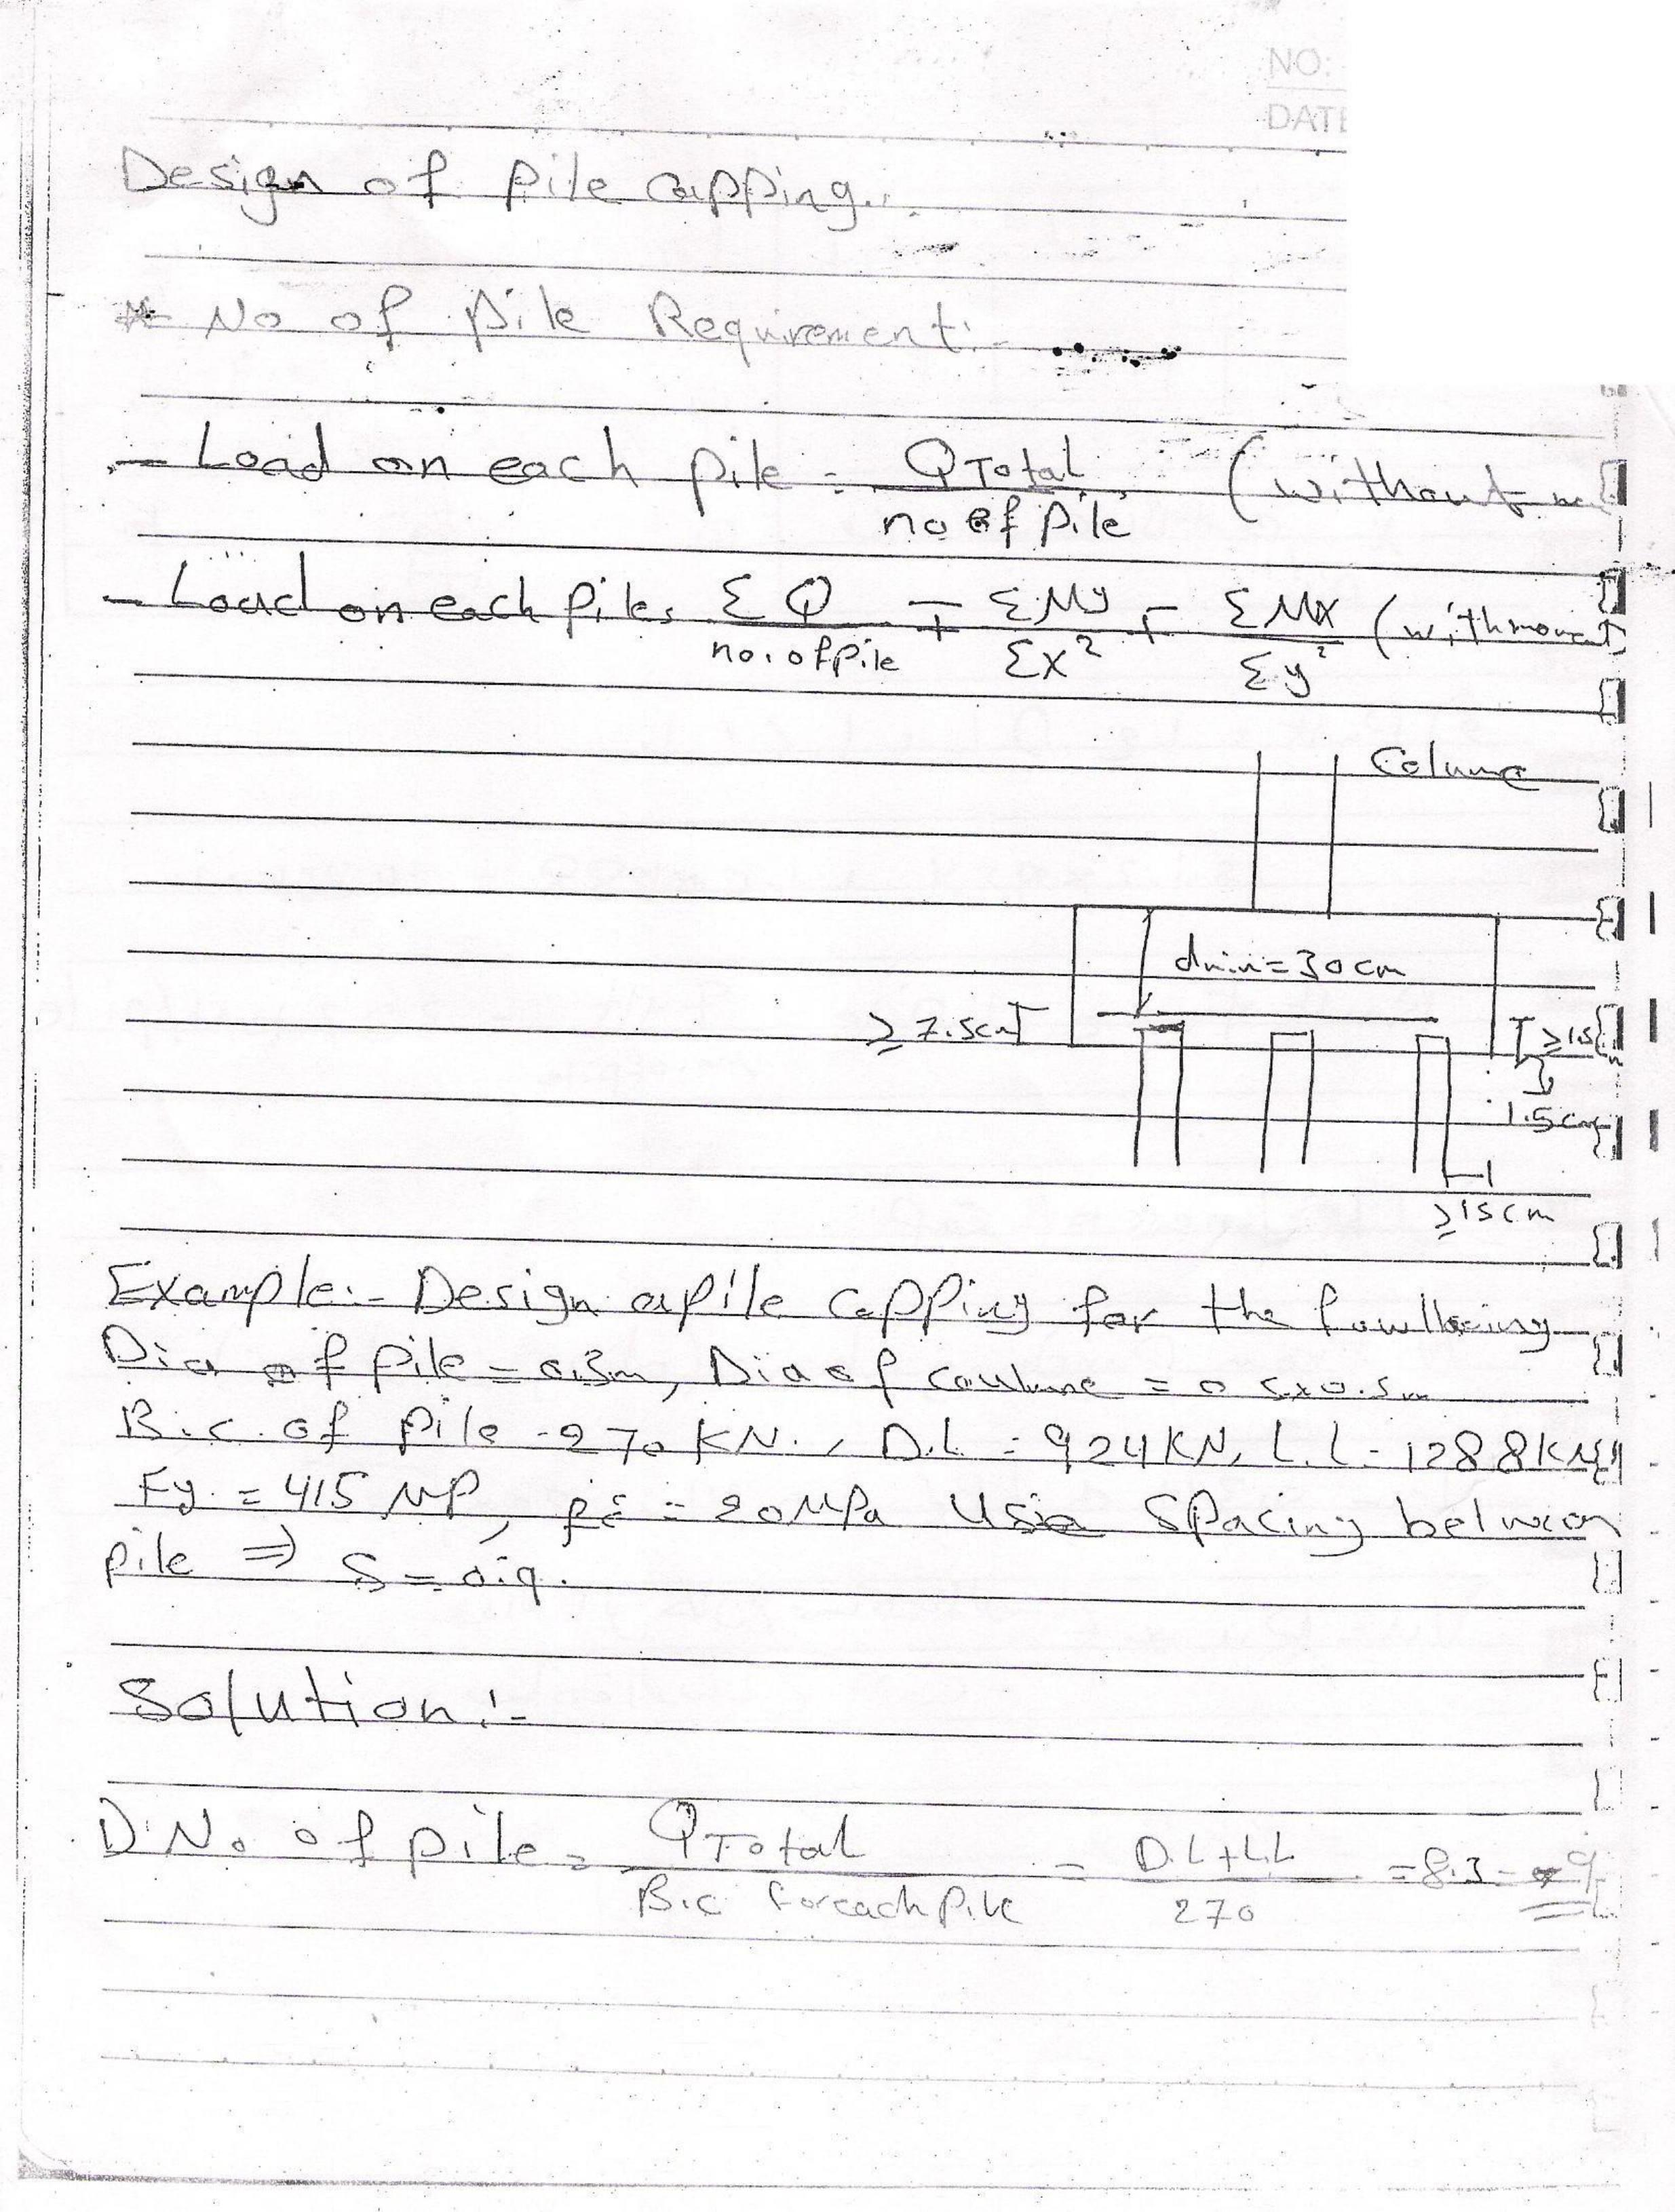 NO:
DATE
Design of Pile capping..
* No of pile Requirement:-
- Load on each pile = QTotal / no of pile (without
- Load on each Piles ΣQ / no. of pile ∓ ΣMy / Σx² ∓ ΣMx / Σy² (with moment)
Colume
dmin = 30 cm
≥ 7.5cm
≥ 15
1.5cm
≥ 15cm
Example:- Design a pile capping for the fowlloing
Dia of Pile = 0.3m, Dia of coulume = 0.5x0.5m
B.c. of Pile = 270 KN., D.L = 924 KN, L.L = 1288 KN
Fy = 415 MP, fc' = 20 MPa Use Spacing between
pile ⇒ S = 0.9.
Solution:-
1) No. of pile = QTotal / B.c for each Pile = D.L + L.L / 270 = 8.3 = 9